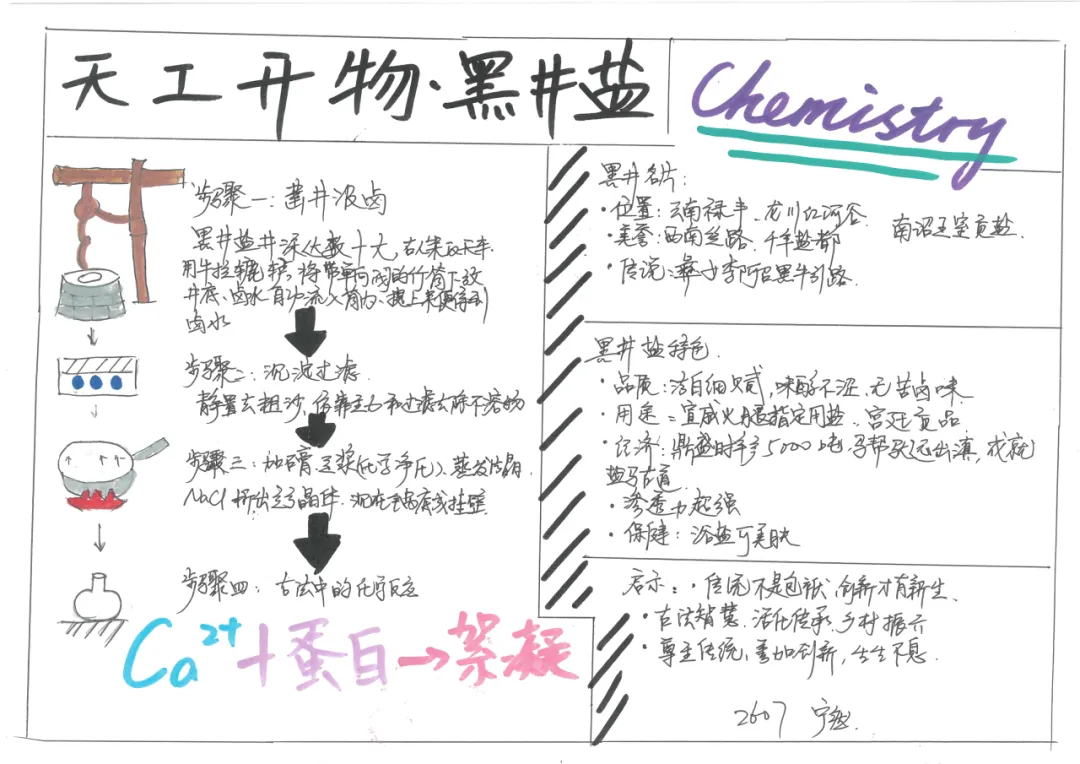 天工开物·黑井盐
Chemistry
步骤一:凿井汲卤
黑井盐井深达数十丈,古人架起天车
用牛拉辘轳,将带单向阀的竹筒下放
井底、卤水自动流入筒内、提上来便得到
卤水
步骤二:沉淀过滤
静置去粗沙,依靠重力和过滤去除不溶物
步骤三:加石膏、豆浆(化学净化)、蒸发结晶
NaCl析出立方晶体、沉在锅底或挂壁
步骤四:古法中的化学反应
Ca²⁺+蛋白→絮凝
黑井名片:
·位置:云南禄丰、龙川江河谷
·美誉:西南丝路、千年盐都
南诏王室贡盐
·传说:彝女李阿召黑牛引路
黑井盐特色
·品质:洁白细腻,味醇不涩、无苦卤味
·用途:宣威火腿指定用盐、宫廷贡品
·经济:鼎盛时年产5000吨,马帮驮运出滇,成就
盐马古道
·渗透力超强
·保健:浴盐可美肤
启示:·传统不是包袱,创新才有新生、
·古法智慧、活化传承、乡村振兴
·尊重传统,勇加创新,生生不息
2607